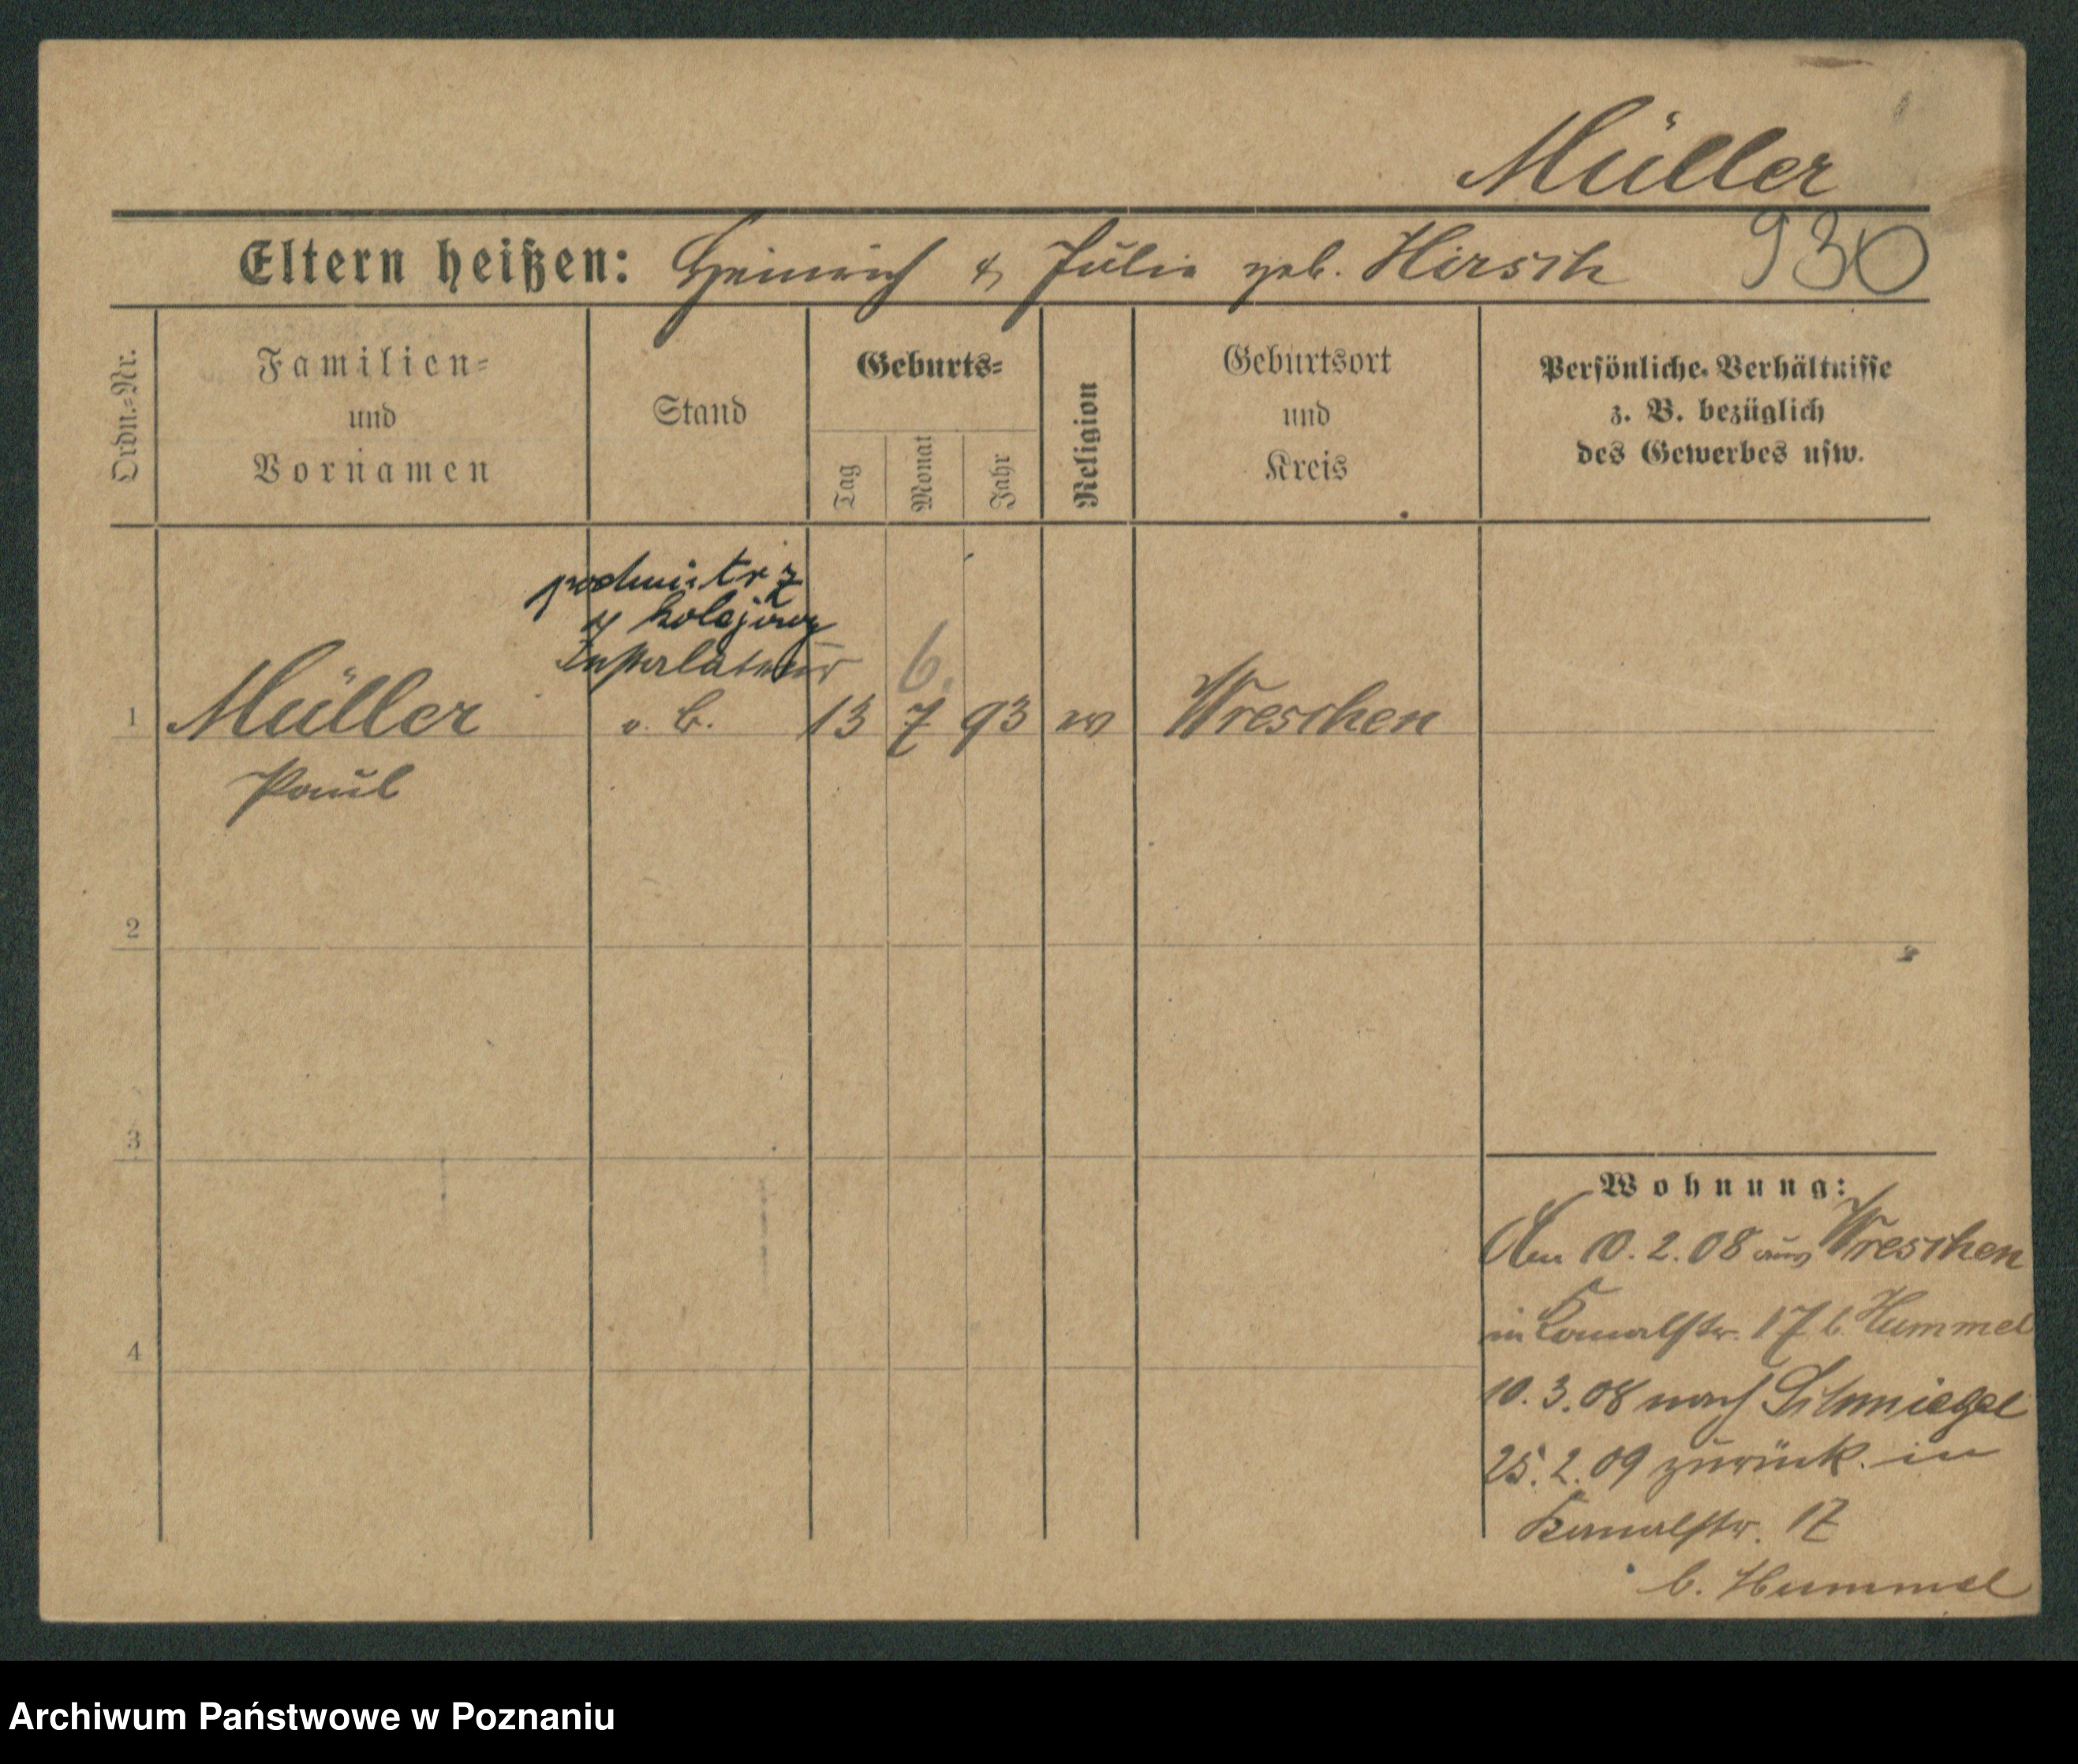 Müller
Eltern heißen: Heinrich & Julie geb. Hirsch 930
Ordn.=Nr.
Familien=
und
Vornamen
Stand
Geburts=
Tag
Monat
Jahr
Religion
Geburtsort
und
Kreis
Persönliche Verhältnisse
z. B. bezüglich
des Gewerbes usw.
podmistrz
kolejowy
Installateur
6.
1 Müller v. B. 13 7 93 ev Wreschen
Paul
2
3
4
Wohnung:
Am 10.2.08 aus Wreschen
in Kanalstr. 17 b. Hummel
10.3.08 nach Schmiegel
25.2.09 zurück in
Kanalstr. 17
b. Hummel
Archiwum Państwowe w Poznaniu